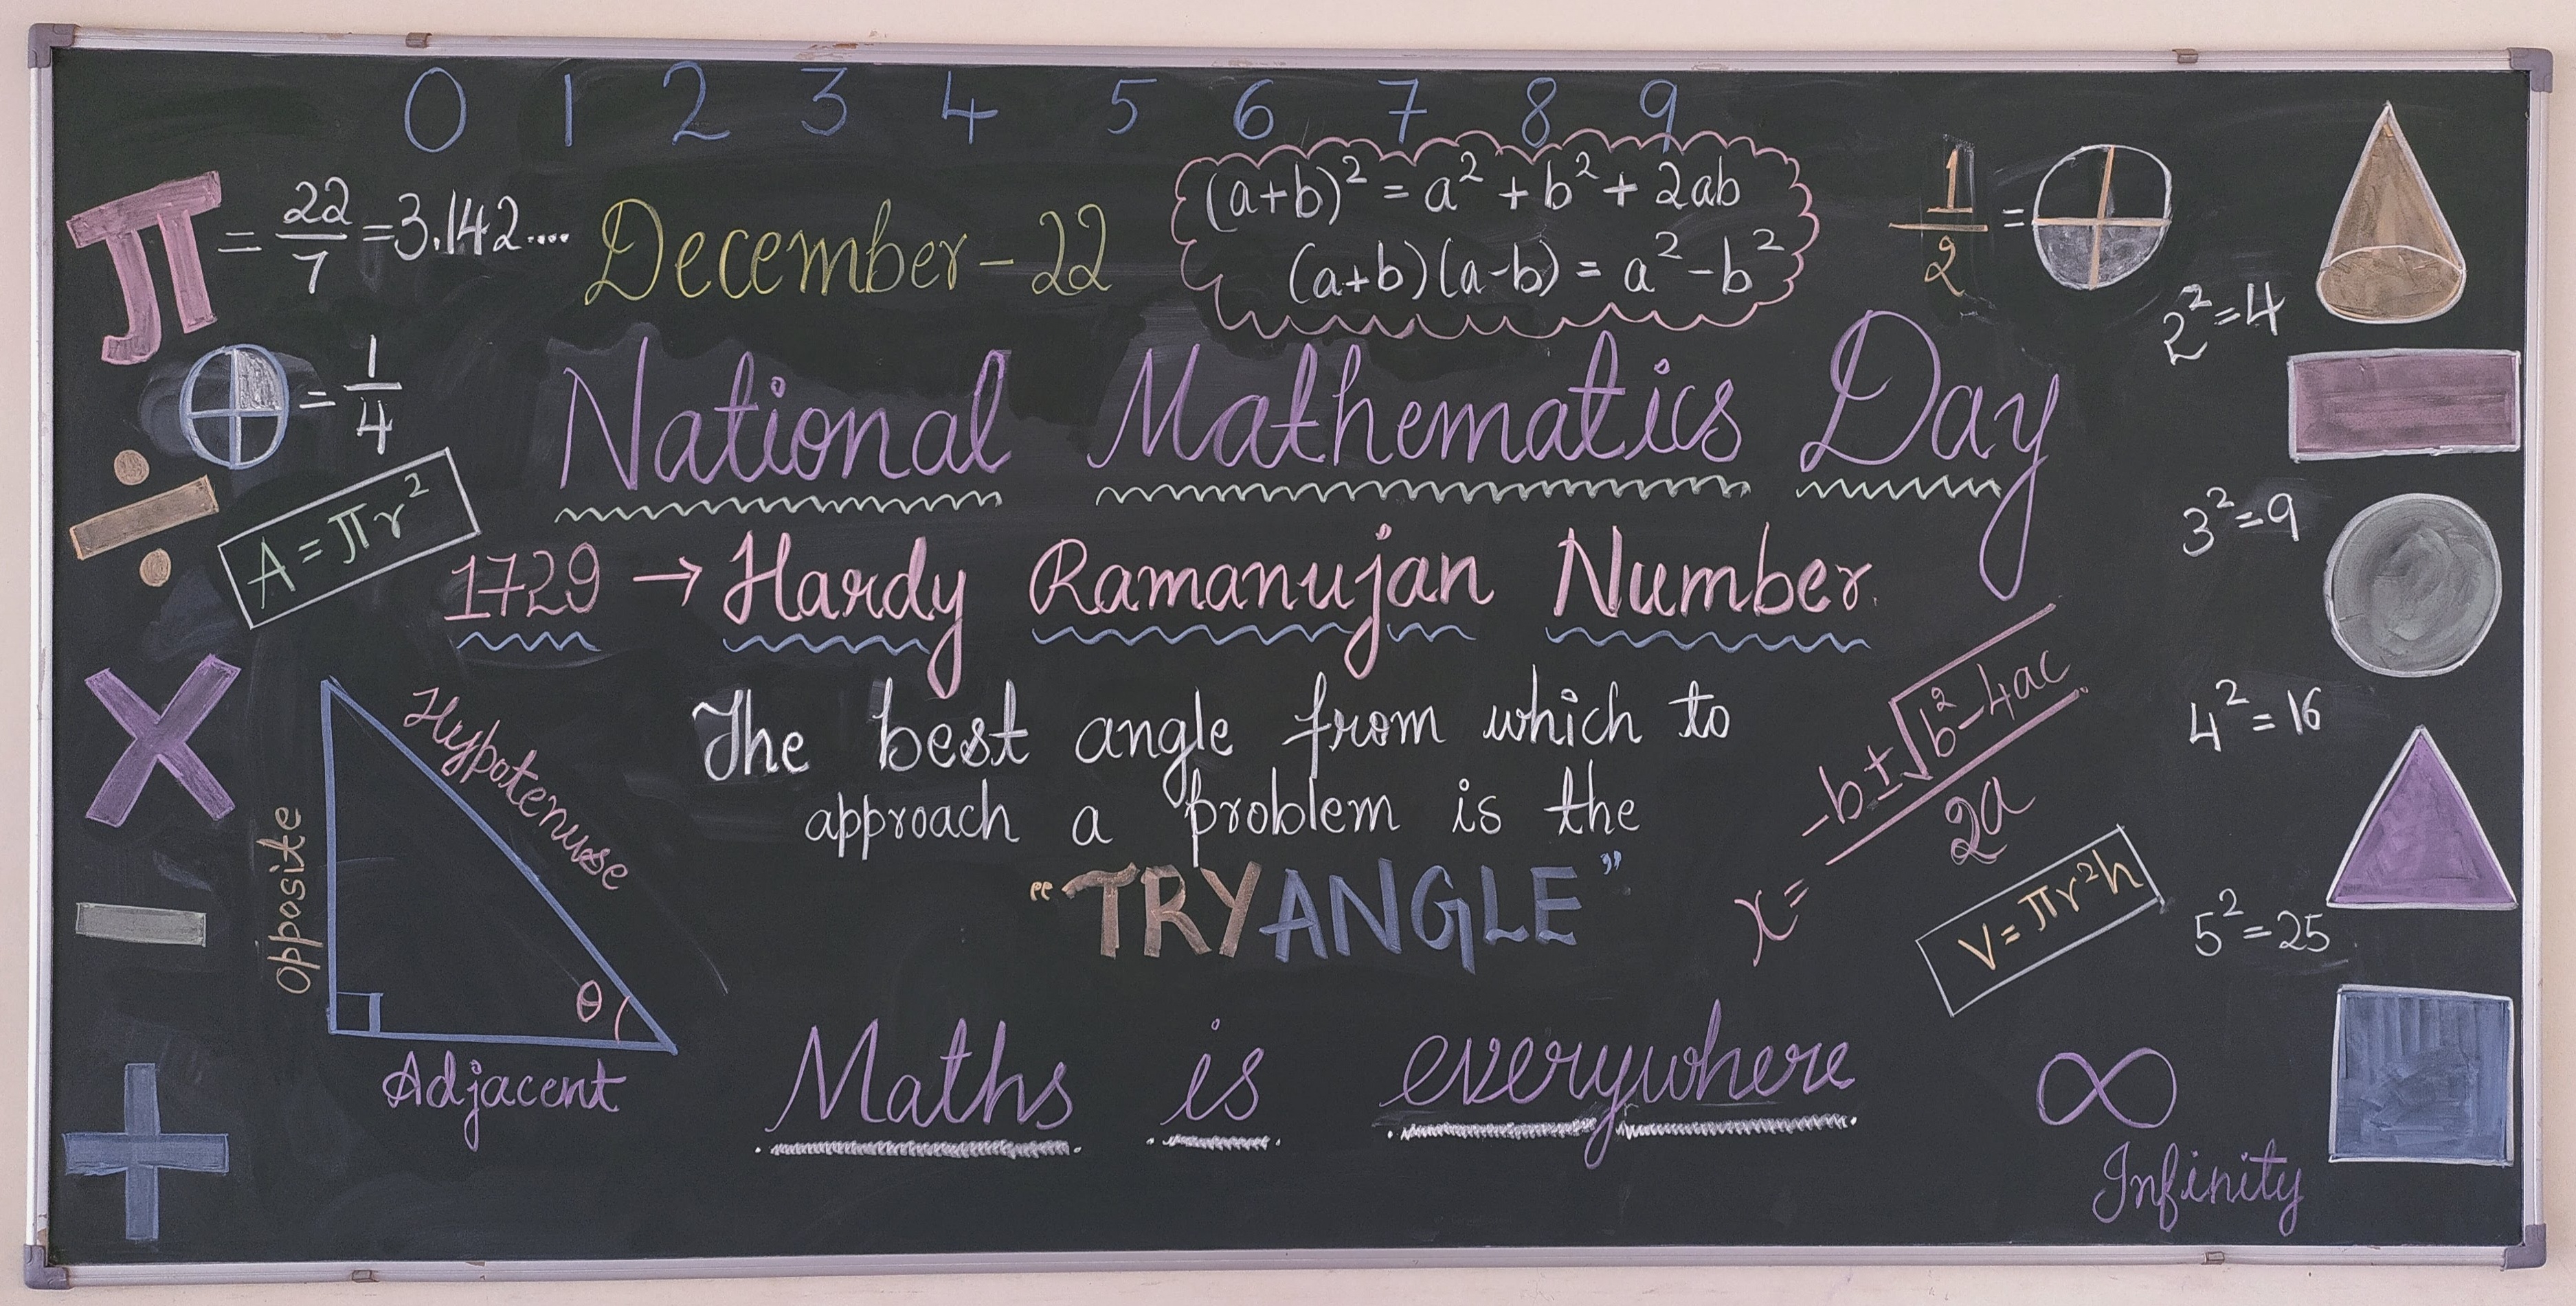 0 1 2 3 4 5 6 7 8 9
π = 22/7 = 3.142....
December - 22
(a+b)² = a² + b² + 2ab
(a+b)(a-b) = a² - b²
1/2 =
= 1/4
2² = 4
National Mathematics Day
÷
A = πr²
1729 → Hardy Ramanujan Number.
3² = 9
×
The best angle from which to
approach a problem is the
"TRYANGLE"
Hypotenuse
Opposite
θ
Adjacent
x = -b±√b²-4ac / 2a
4² = 16
V = πr²h
5² = 25
−
+
Maths is everywhere
∞
Infinity